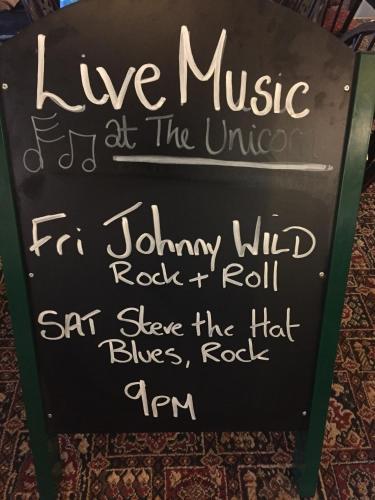 Live Music
at The Unicorn
Fri Johnny WILD
Rock + Roll
SAT Steve the Hat
Blues, Rock
9PM